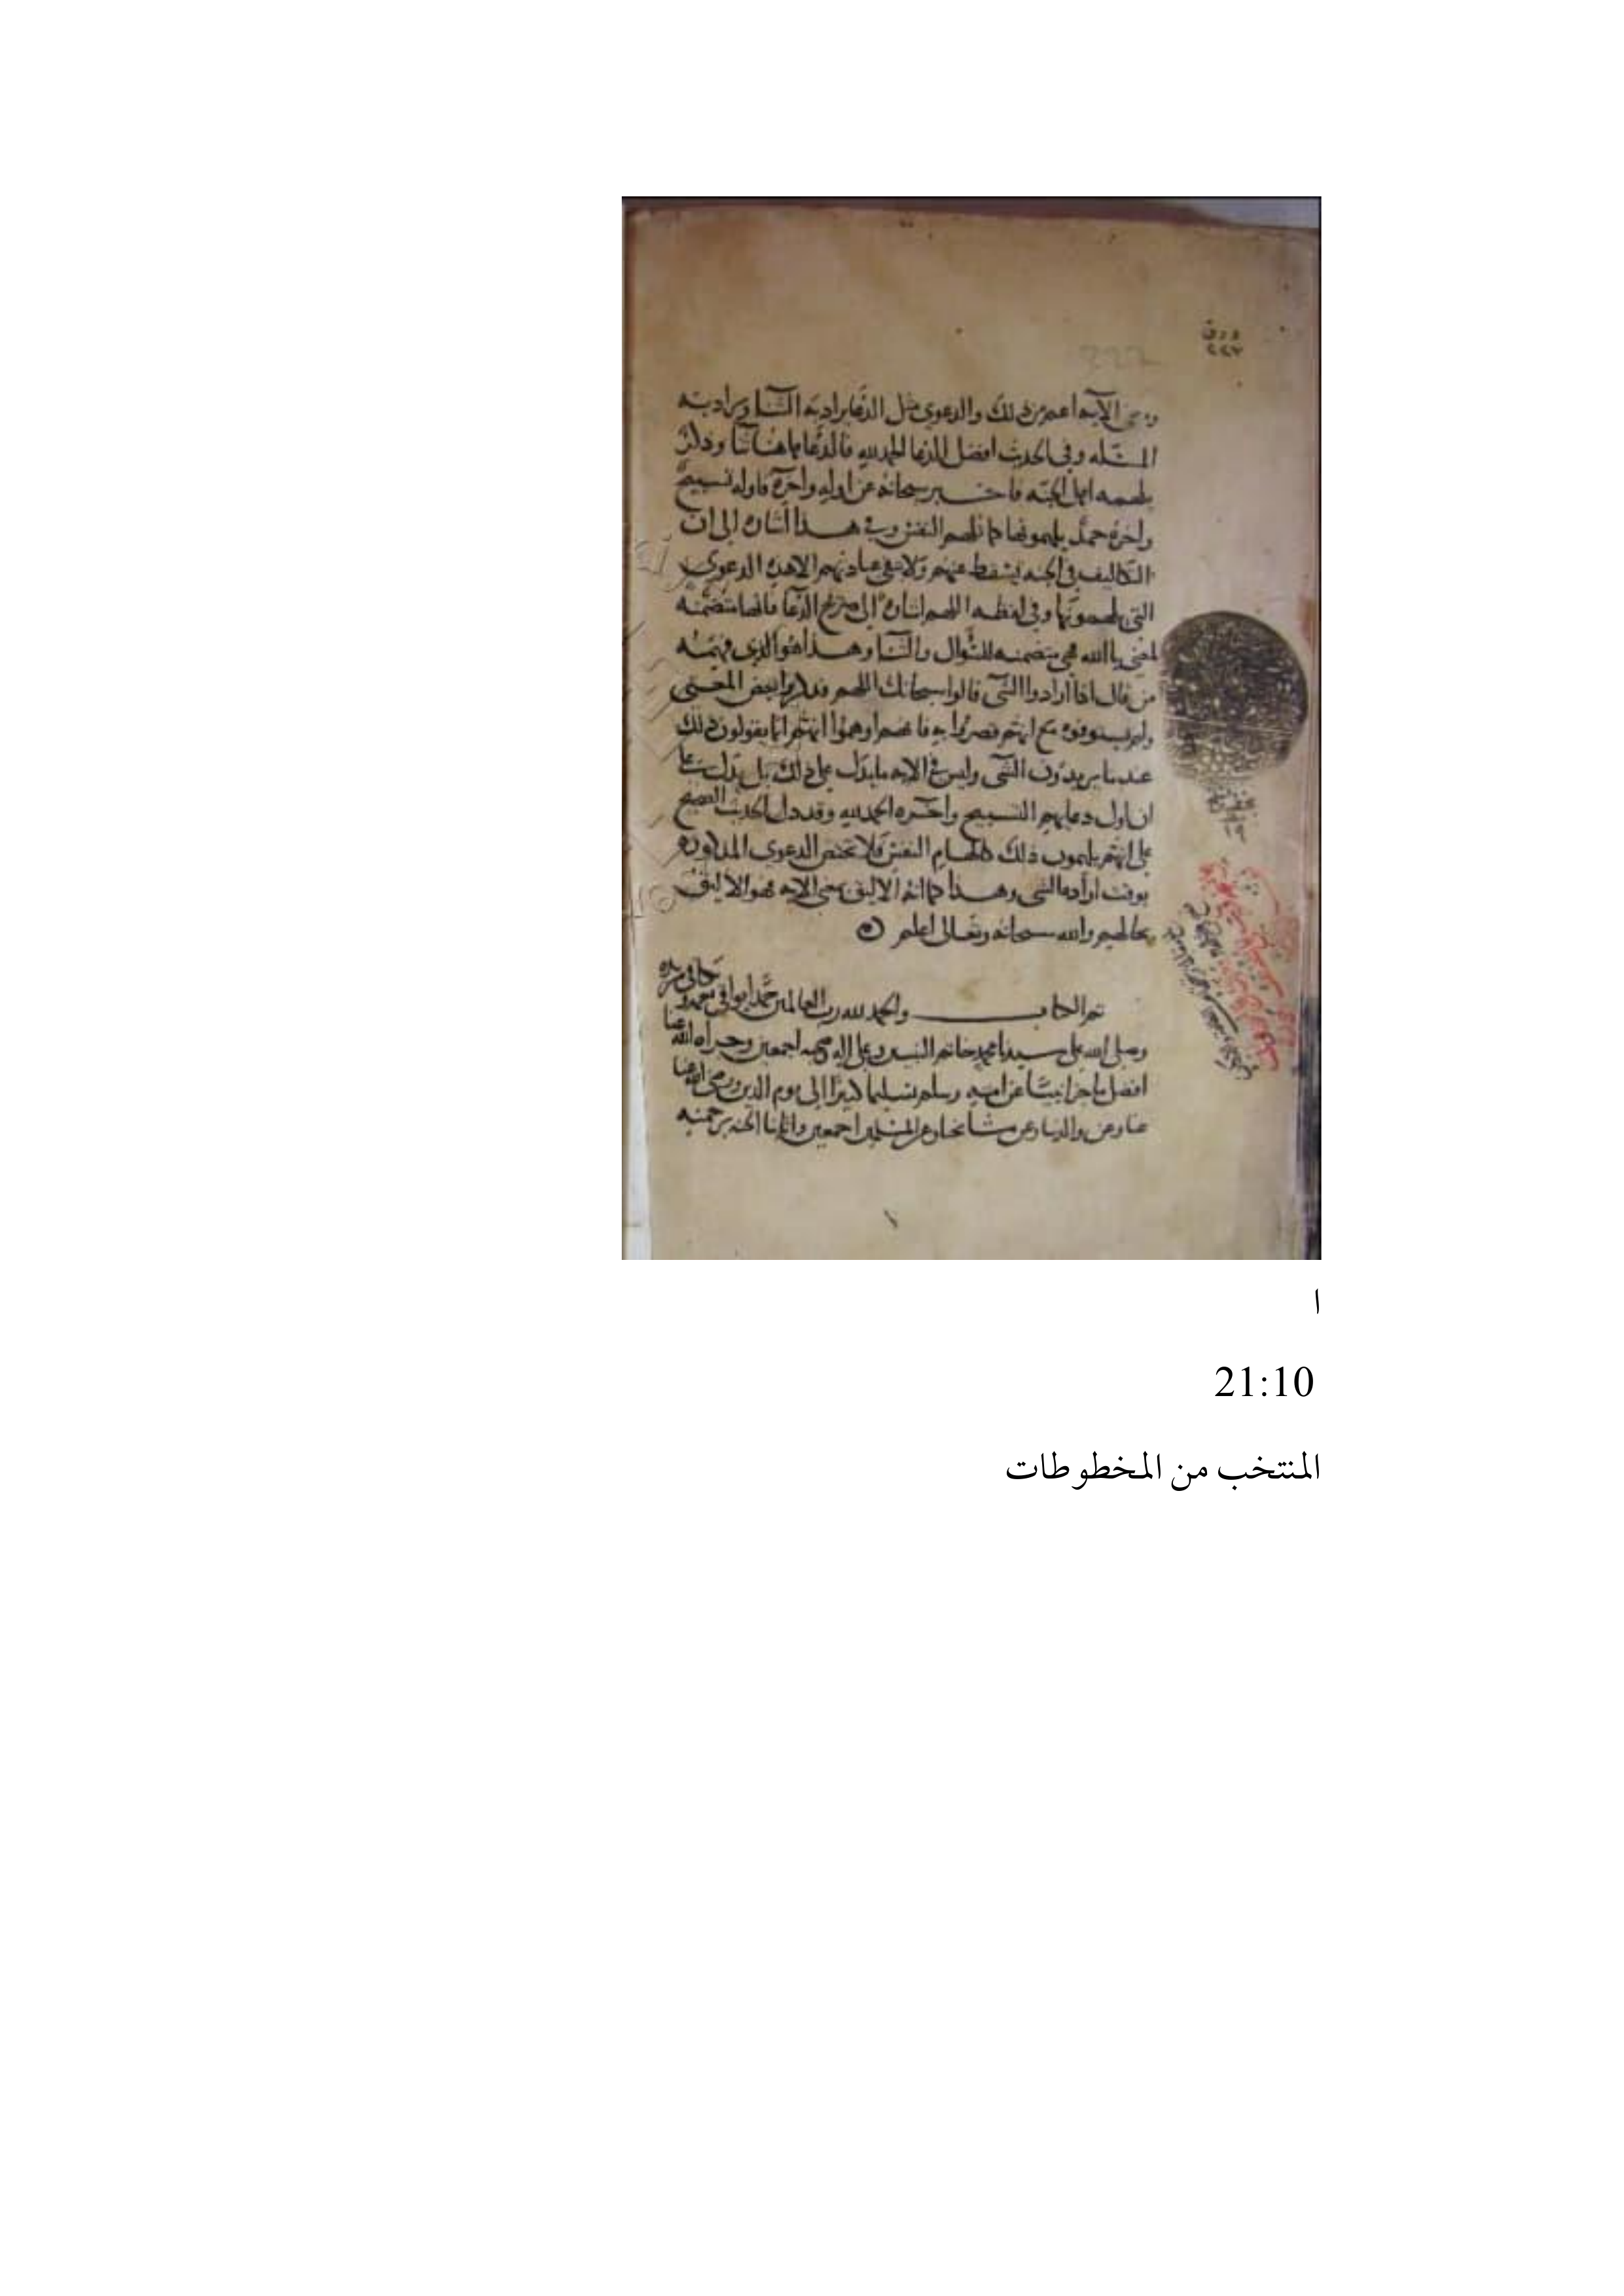 ورق
٢٢٧
222
ومعنى الآيه اعم من ذلك والدعوى مثل الدعا يراد به الثنا ويراد به
المسئله وفى الحديث افضل الدعا الحمد لله فالدعا هاهنا ثنا وذكر
يلهمه اهل الجنه فاخبر سبحانه عن اوله واخره فاوله تسبيح
واخره حمد يلهمونها كما يلهم النفس وفى هذا اشارة الى ان
التكاليف فى الجنه يسقط عنهم ولا يبقى عبادتهم الا هذه الدعوى
التى يلهمونها وفى لفظه اللهم اشارة الى صريح الدعا فانها متضمنه
لمعنى يا الله فهى متضمنه للسؤال والثنا وهذا هو الذى فهمه
من قال اذا ارادوا الشى قالوا سبحانك اللهم فذكروا بعض المعنى
ولم يستوفوه مع انهم قصروا به فانهم اوهموا انهم انما يقولون ذلك
عندما يريدون الشى وليس فى الايه ما يدل على ذلك بل يدل على
ان اول دعايهم التسبيح وآخره الحمد لله وقد دل الحديث الصحيح
على انهم يلهمون ذلك كالهام النفس فلا تختص الدعوى المذكوره
بوقت ارادة الشى وهذا كما انه الاليق بمعنى الايه فهو الاليق
بحالهم والله سبحانه وتعالى اعلم
تم الكتاب والحمد لله رب العالمين حمدا يوافى نعمه ويكافى مزيده
وصلى الله على سيدنا محمد خاتم النبيين وعلى اله وصحبه اجمعين وجزاه الله عنا
افضل ما جزا نبيا عن امته وسلم تسليما كثيرا الى يوم الدين ورضى الله عنا
وعن والدينا وعن مشايخنا وعن المسلمين اجمعين واثابنا الجنه برحمته
ا
21:10
المنتخب من المخطوطات